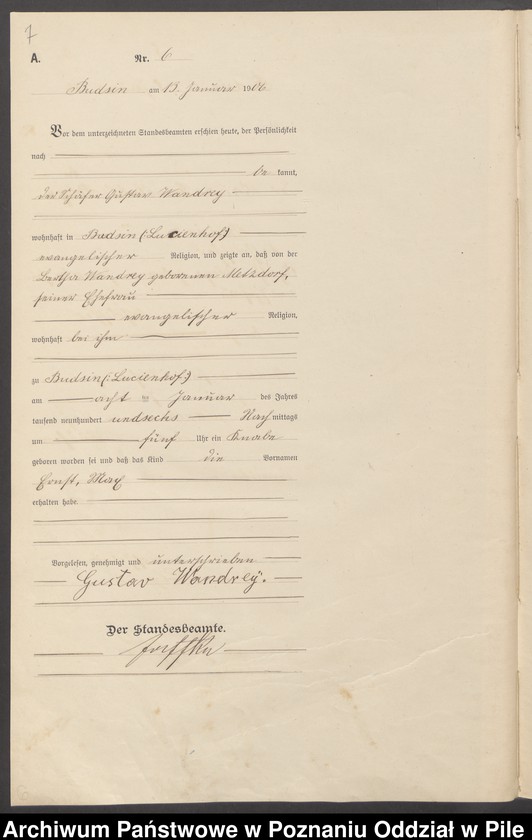 7
A. Nr. 6
Budsin am 13. Januar 1906
Vor dem unterzeichneten Standesbeamten erschien heute, der Persönlichkeit
nach
be kannt,
der Schäfer Gustav Wandrey
wohnhaft in Budsin (: Lucienhof)
evangelischer Religion, und zeigte an, daß von der
Bertha Wandrey geborenen Metzdorf,
seiner Ehefrau
evangelischer Religion,
wohnhaft bei ihm
zu Budsin (: Lucienhof)
am acht Januar des Jahres
tausend neunhundert undsechs Nach mittags
um fünf Uhr ein Knabe
geboren worden sei und daß das Kind die Vornamen
Ernst, Max
erhalten habe.
Vorgelesen, genehmigt und unterschrieben
Gustav Wandrey.
Der Standesbeamte.
Archiwum Państwowe w Poznaniu Oddział w Pile